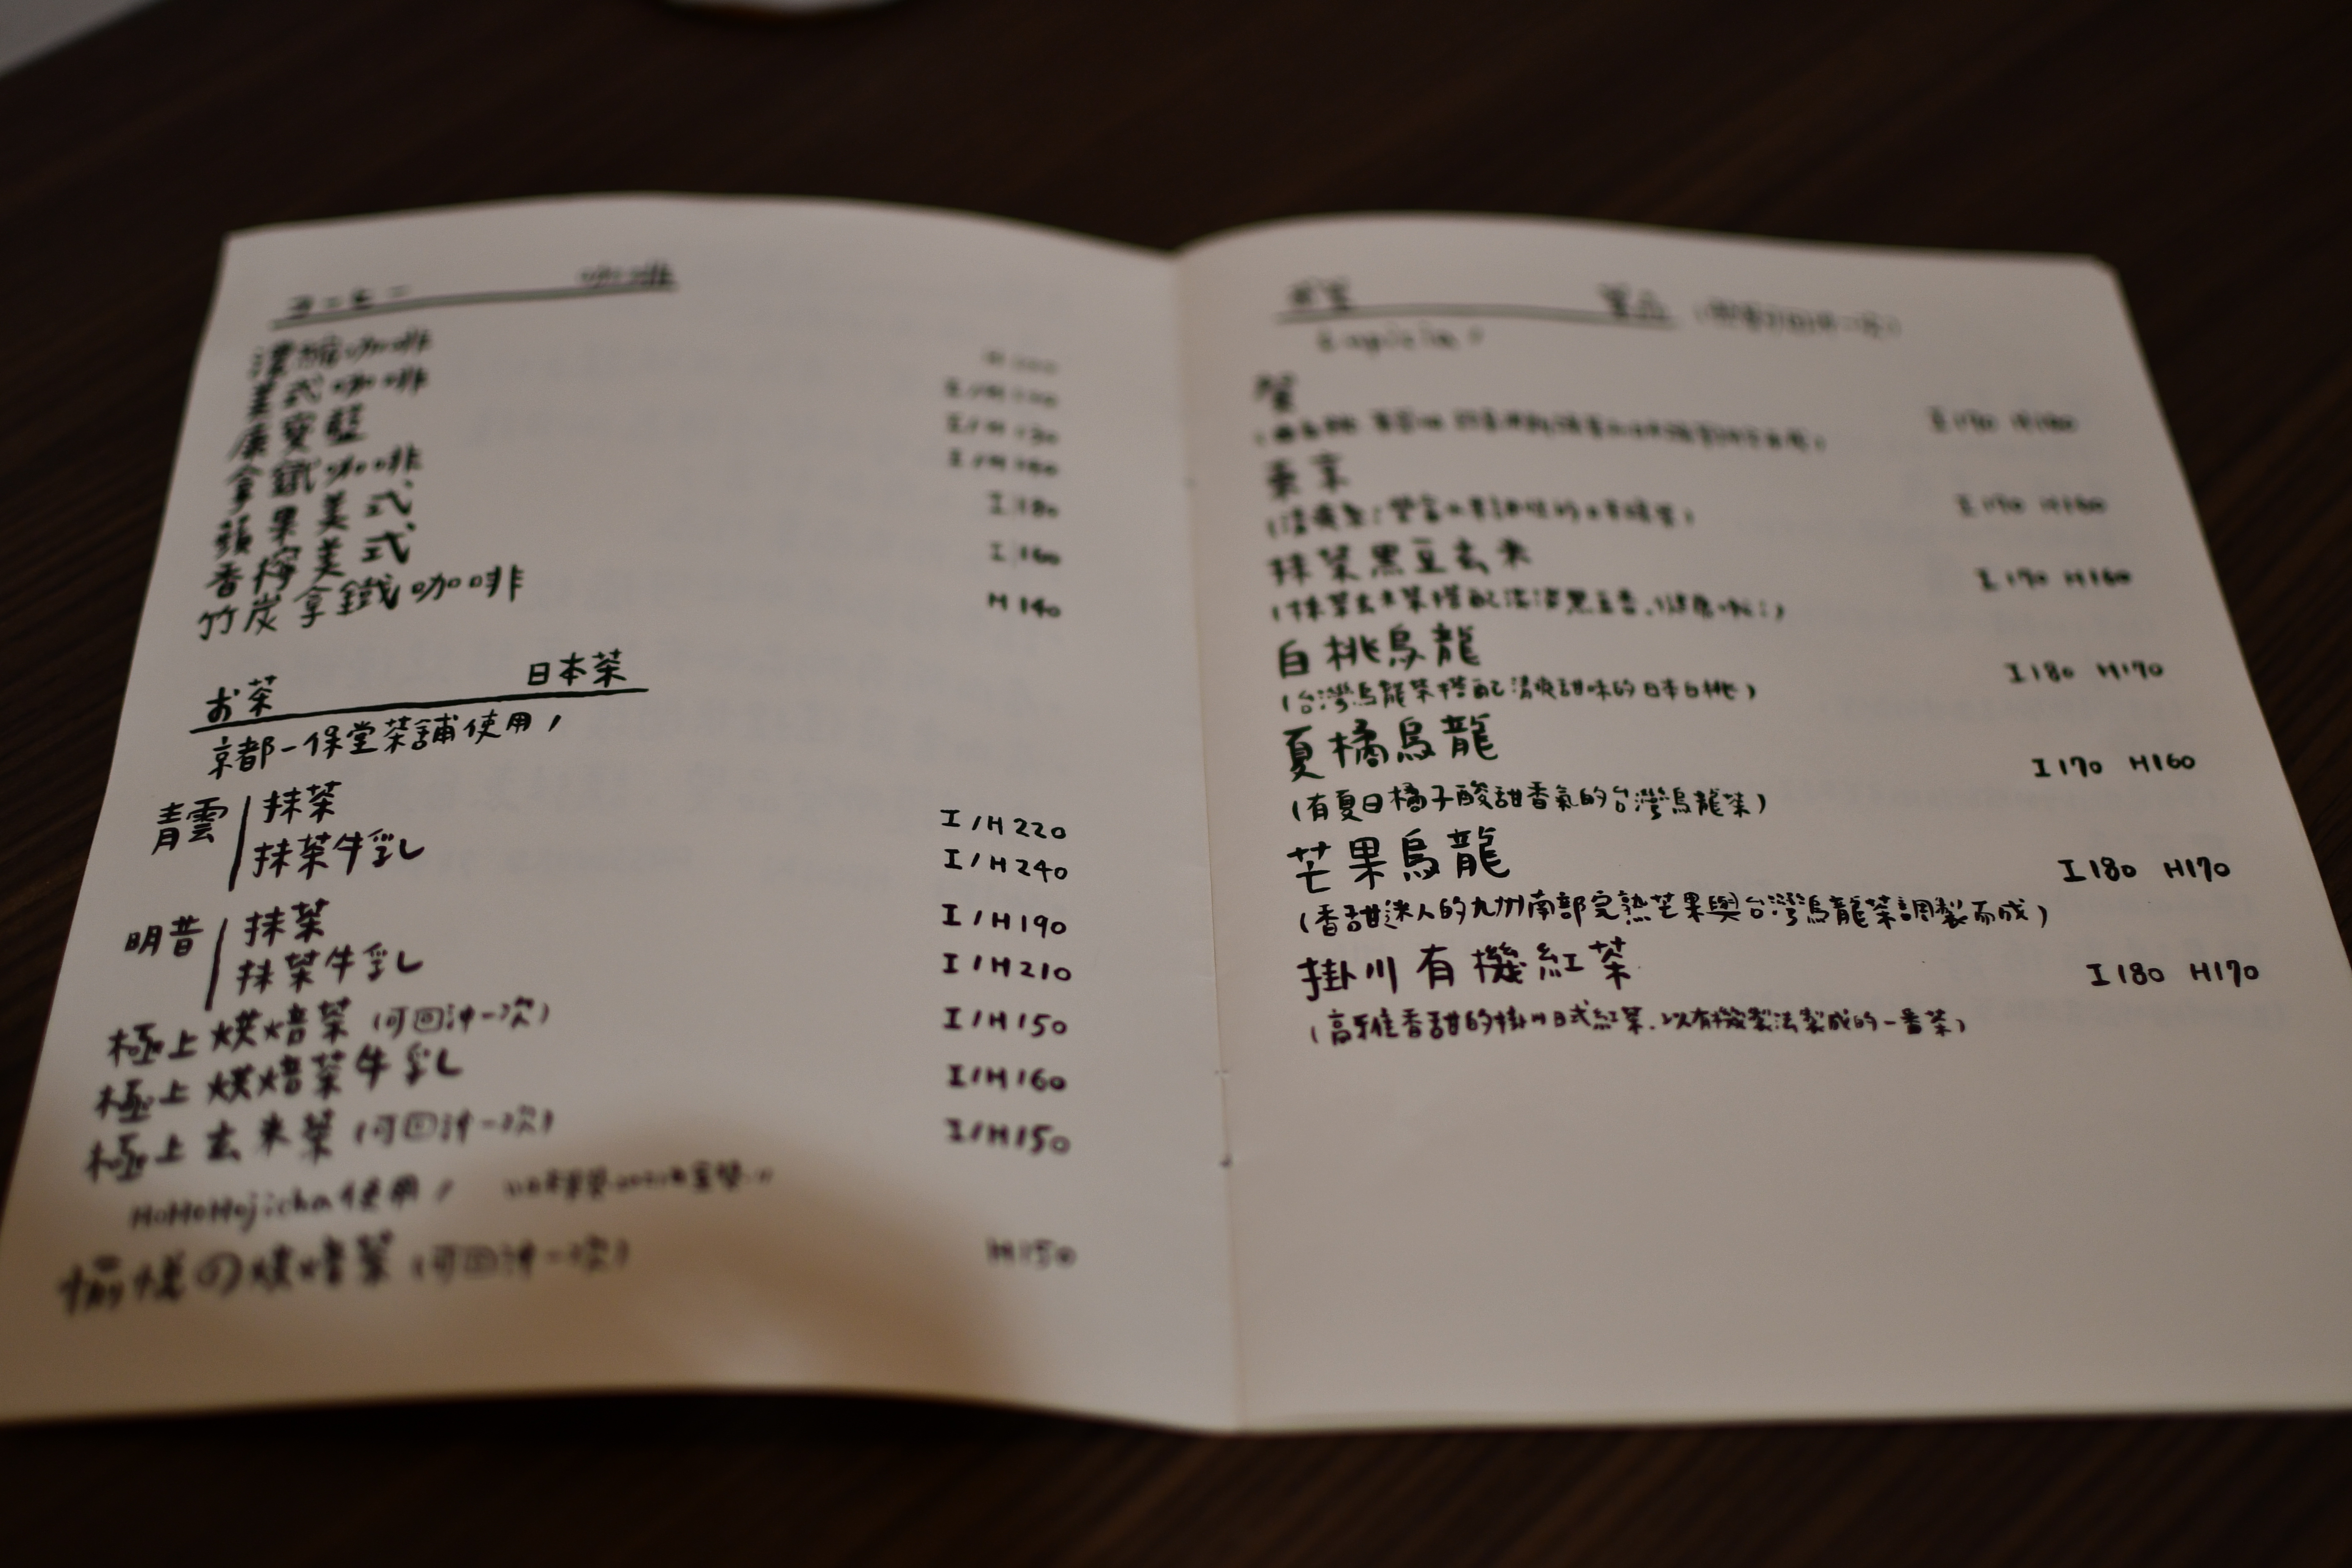 コーヒー 咖啡
濃縮咖啡
美式咖啡 I/H
康寶藍 I/H 130
拿鐵咖啡 I/H
蘋果美式 I 180
香檸美式 I 160
竹炭拿鐵咖啡 H 140
お茶 日本茶
京都一保堂茶舗使用!
青雲 抹茶 I/H 220
抹茶牛乳 I/H 240
明昔 抹茶 I/H 190
抹茶牛乳 I/H 210
極上烘焙茶 (可回沖一次) I/H 150
極上烘焙茶牛乳 I/H 160
極上玄米茶 (可回沖一次) I/H 150
HoHoHojicha使用!
愉悅の烘焙茶 (可回沖一次) H 150
Lupicia!
I 170 H 160
I 170 H 160
抹茶黑豆玄米 I 170 H 160
(抹茶玄米茶搭配淡淡黑豆香,
白桃烏龍 I 180 H 170
(台灣烏龍茶搭配清爽甜味的日本白桃)
夏橘烏龍 I 170 H 160
(有夏日橘子酸甜香氣的台灣烏龍茶)
芒果烏龍 I 180 H 170
(香甜迷人的九州南部完熟芒果與台灣烏龍茶調製而成)
掛川有機紅茶 I 180 H 170
(高雅香甜的掛川日式紅茶,以有機製法製成的一番茶)